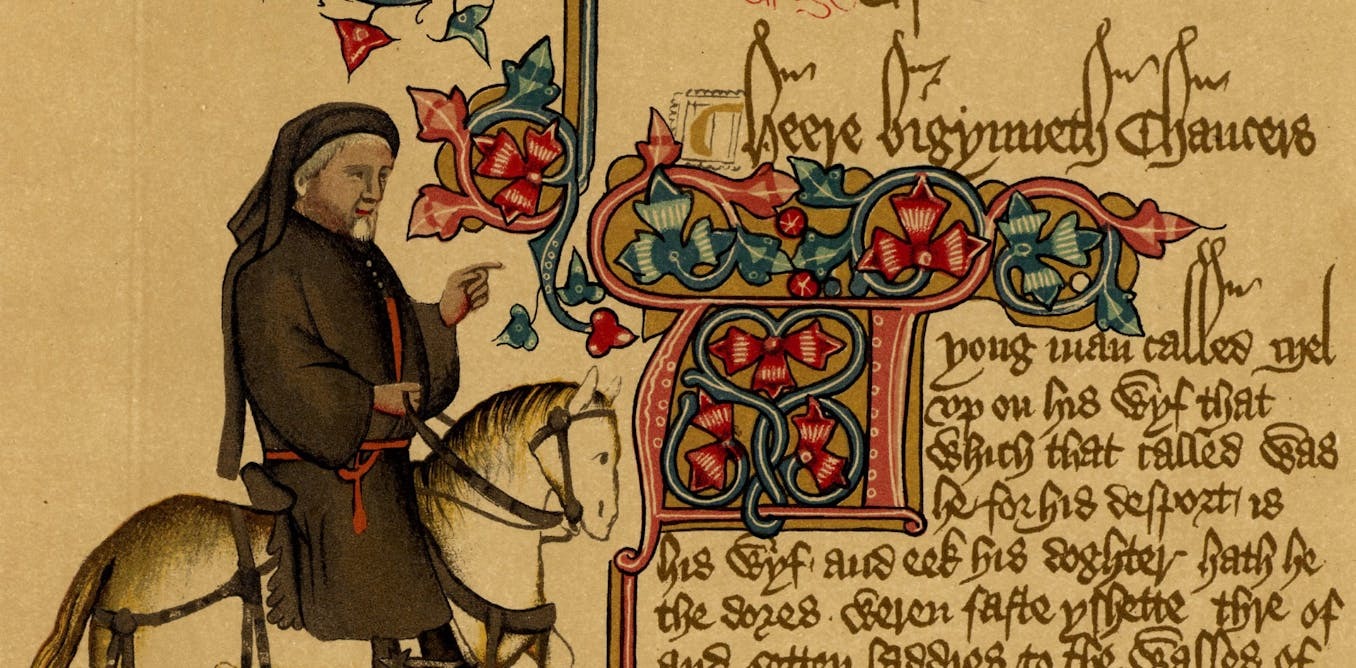 Heere bigynneth Chaucers
A yong man called Mel
vp on his wyf that
which that called was
he for his desport is
his wyf and eek his doghter hath he
the dores weren faste yshette thre of
and setten laddres to the walles of